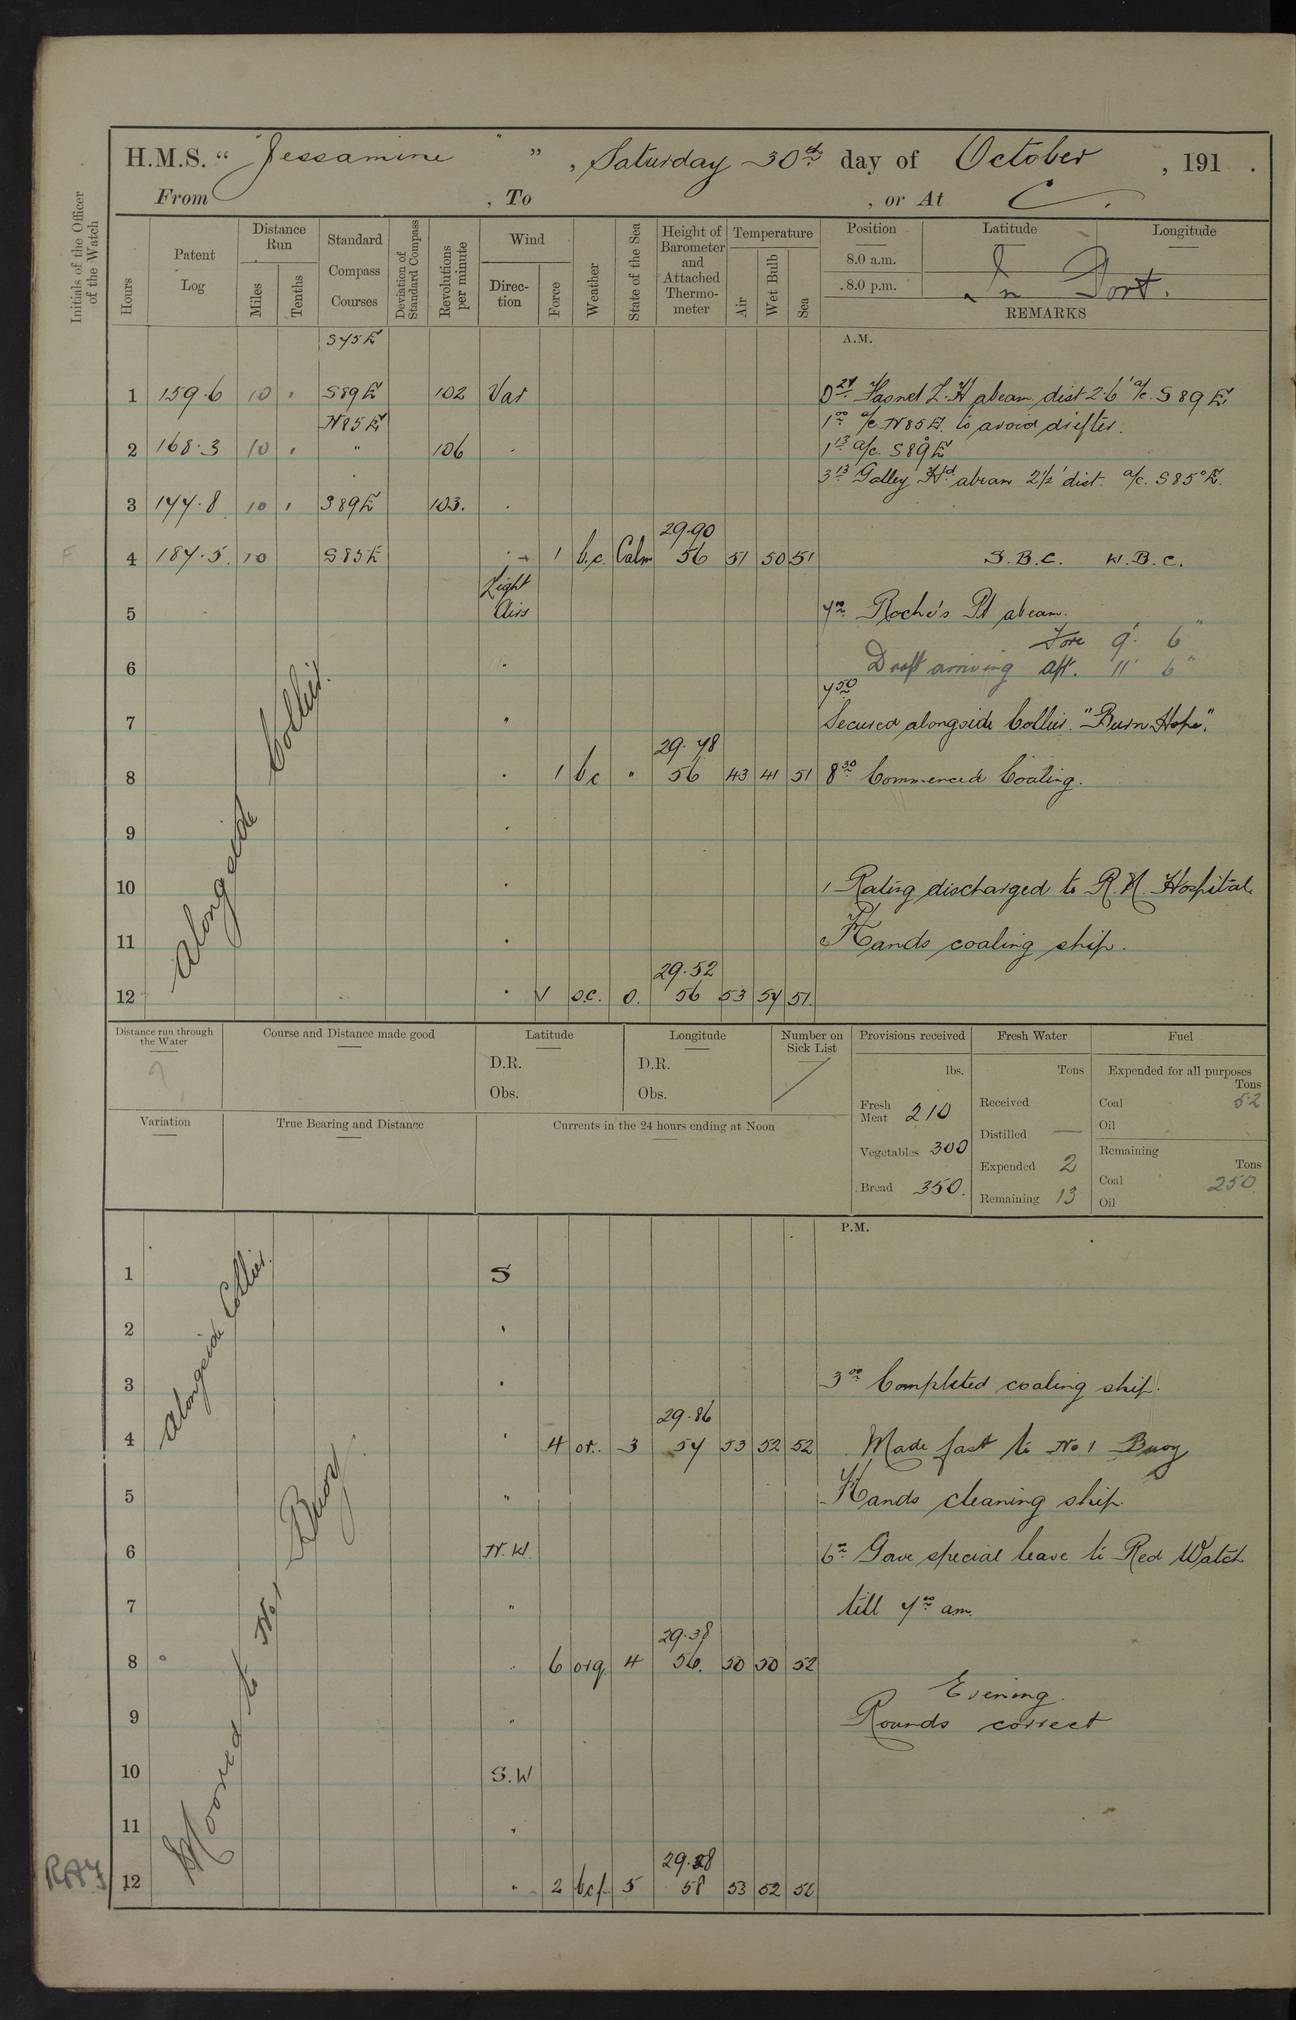 H.M.S. “ Jessamine ” , Saturday 30th day of October , 191 .
From , To , or At
Initials of the Officer of the Watch
Hours
Patent Log
Distance Run
Miles
Tenths
Standard Compass Courses
Deviation of Standard Compass
Revolutions per minute
Wind
Direction
Force
Weather
State of the Sea
Height of Barometer and Attached Thermometer
Temperature
Air
Wet Bulb
Sea
Position Latitude Longitude
8.0 a.m.
8.0 p.m.
In Port.
REMARKS
A.M.
S45E
1 159.6 10 . S89E 102 Var 0 27 Fasnet L.H abeam dist 2.6' a/c. S89E.
N85E 1 00 a/c N85E. to avoid drifter.
2 168.3 10 . " 106 . 1 13 a/c. S89E
3 13 Galley Hd abeam 2½' dist. a/c. S85°E.
3 177.8 10 . S89E 103. .
29.90
4 187.5. 10 S85E 1 b.c. Calm 56 51 50 51 S.B.C. W.B.C.
Light
5 Airs 7 Roche's Pt abeam.
Fore 9' 6"
6 " Draft arriving aft. 11' 6"
7 50
7 " Secured alongside Collier. "Burn Hope".
29.78
8 " 1 bc " 56 43 41 51 8 30 Commenced Coaling.
9 "
10 " 1 Rating discharged to R.N. Hospital.
11 " Hands coaling ship.
29.52
12 " V o.c. 0. 56 53 54 51.
Alongside Collier.
Distance run through the Water
Course and Distance made good
Latitude
D.R.
Obs.
Longitude
D.R.
Obs.
Number on Sick List
Provisions received
lbs.
Fresh Meat 210
Vegetables 300
Bread 350.
Fresh Water
Tons
Received
Distilled —
Expended 2
Remaining 13
Fuel
Expended for all purposes
Tons
Coal 52
Oil
Remaining
Tons
Coal 250
Oil
Variation
True Bearing and Distance
Currents in the 24 hours ending at Noon
P.M.
1 S
2 "
3 " 3 00 Completed coaling ship.
29.86
4 " 4 or. 3 54 53 52 52 Made fast to No 1 Buoy
5 " Hands cleaning ship.
6 N.W 6 Gave special leave to Red Watch
7 " till 7 00 am.
29.38
8 " 6 orq 4 56. 50 50 52
Evening.
9 " Rounds correct
10 S.W
11 "
29.28
12 " 2 bcf 5 58 53 52
Alongside Collier.
Moored to No 1 Buoy